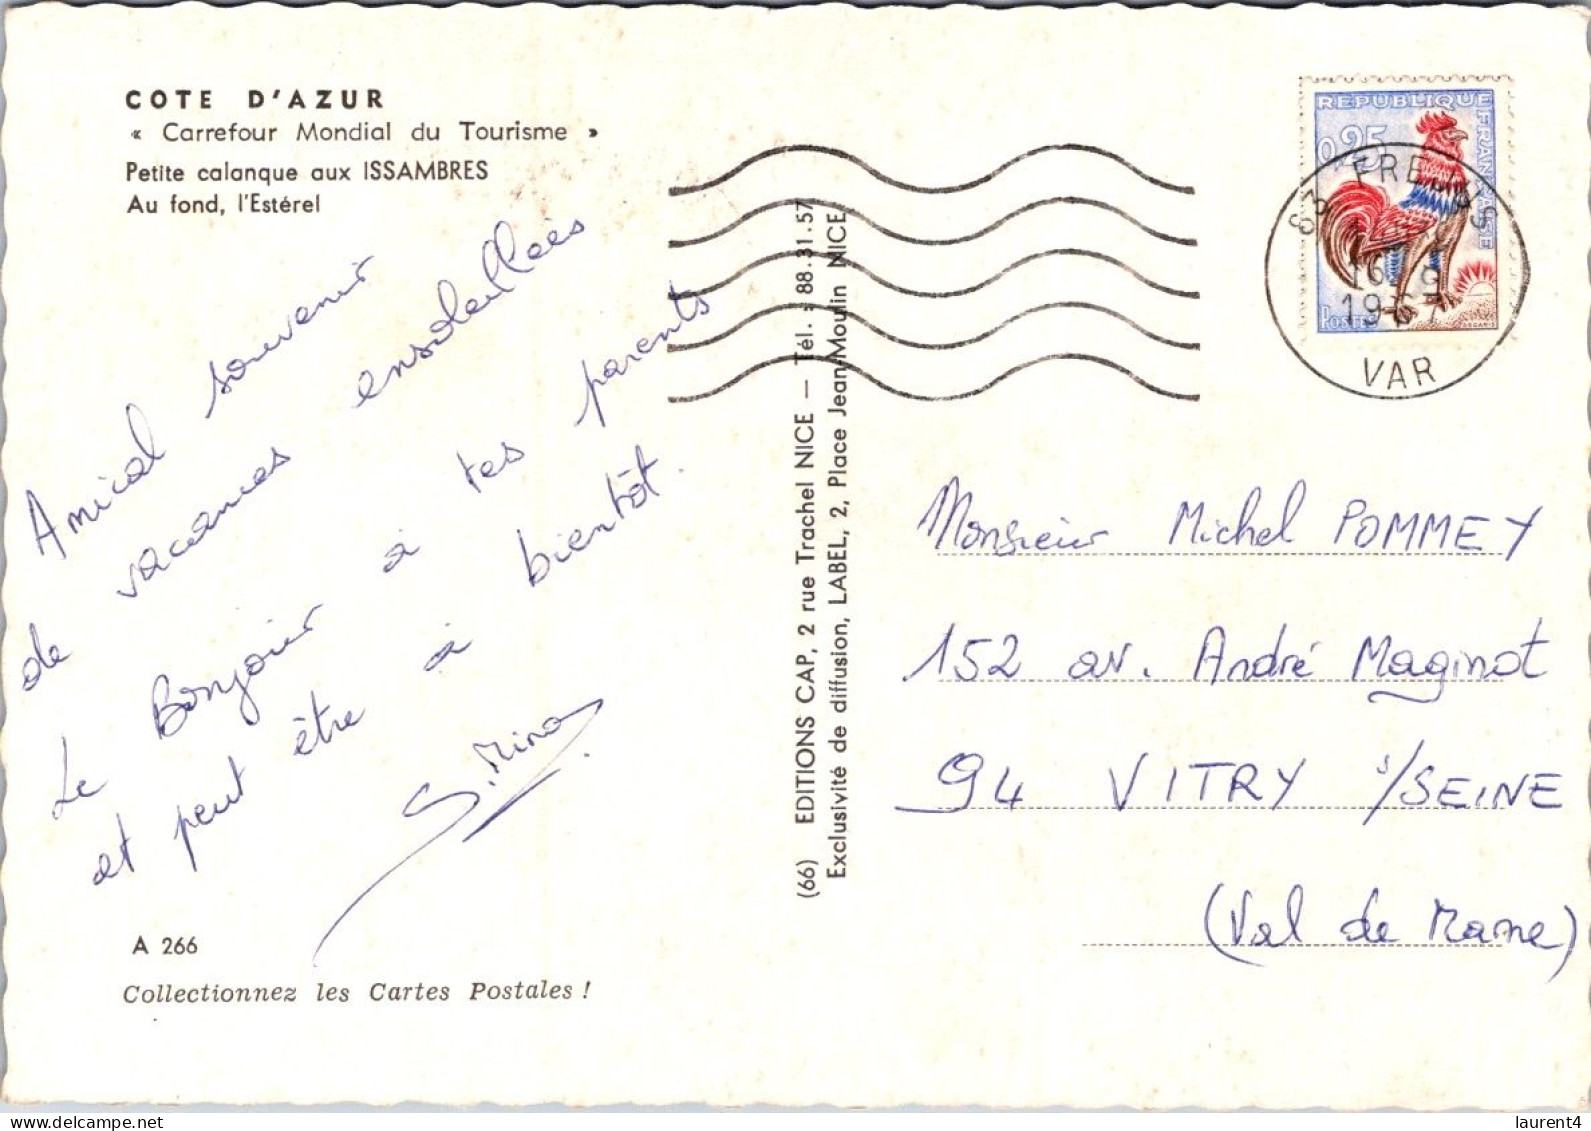 COTE D'AZUR
« Carrefour Mondial du Tourisme »
Petite calanque aux ISSAMBRES
Au fond, l'Estérel
Amical souvenir
de vacances ensoleillées
Le Bonjour à tes parents
et peut être à bientôt.
S. Mino
A 266
Collectionnez les Cartes Postales !
(66) EDITIONS CAP, 2 rue Trachel NICE — Tél. : 88.31.57
Exclusivité de diffusion, LABEL, 2, Place Jean-Moulin NICE
REPUBLIQUE FRANÇAISE
0,25
Postes
DECARIS
83 FREJUS
16 9
1967
VAR
Monsieur Michel POMMEY
152 av. André Maginot
94 VITRY s/SEINE
(Val de Marne)
laurent4